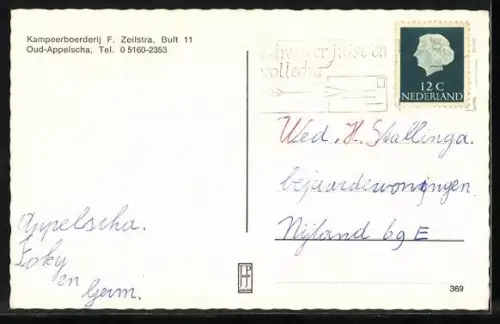 Kampeerboerderij F. Zeilstra, Bult 11
Oud-Appelscha, Tel. 0 5160-2353
adresseer juist en
volledig
12 C
NEDERLAND
Wed. H. Stallinga.
bejaardewoningen
Nijland 69 E
Appelscha.
Foky
en
Germ.
369